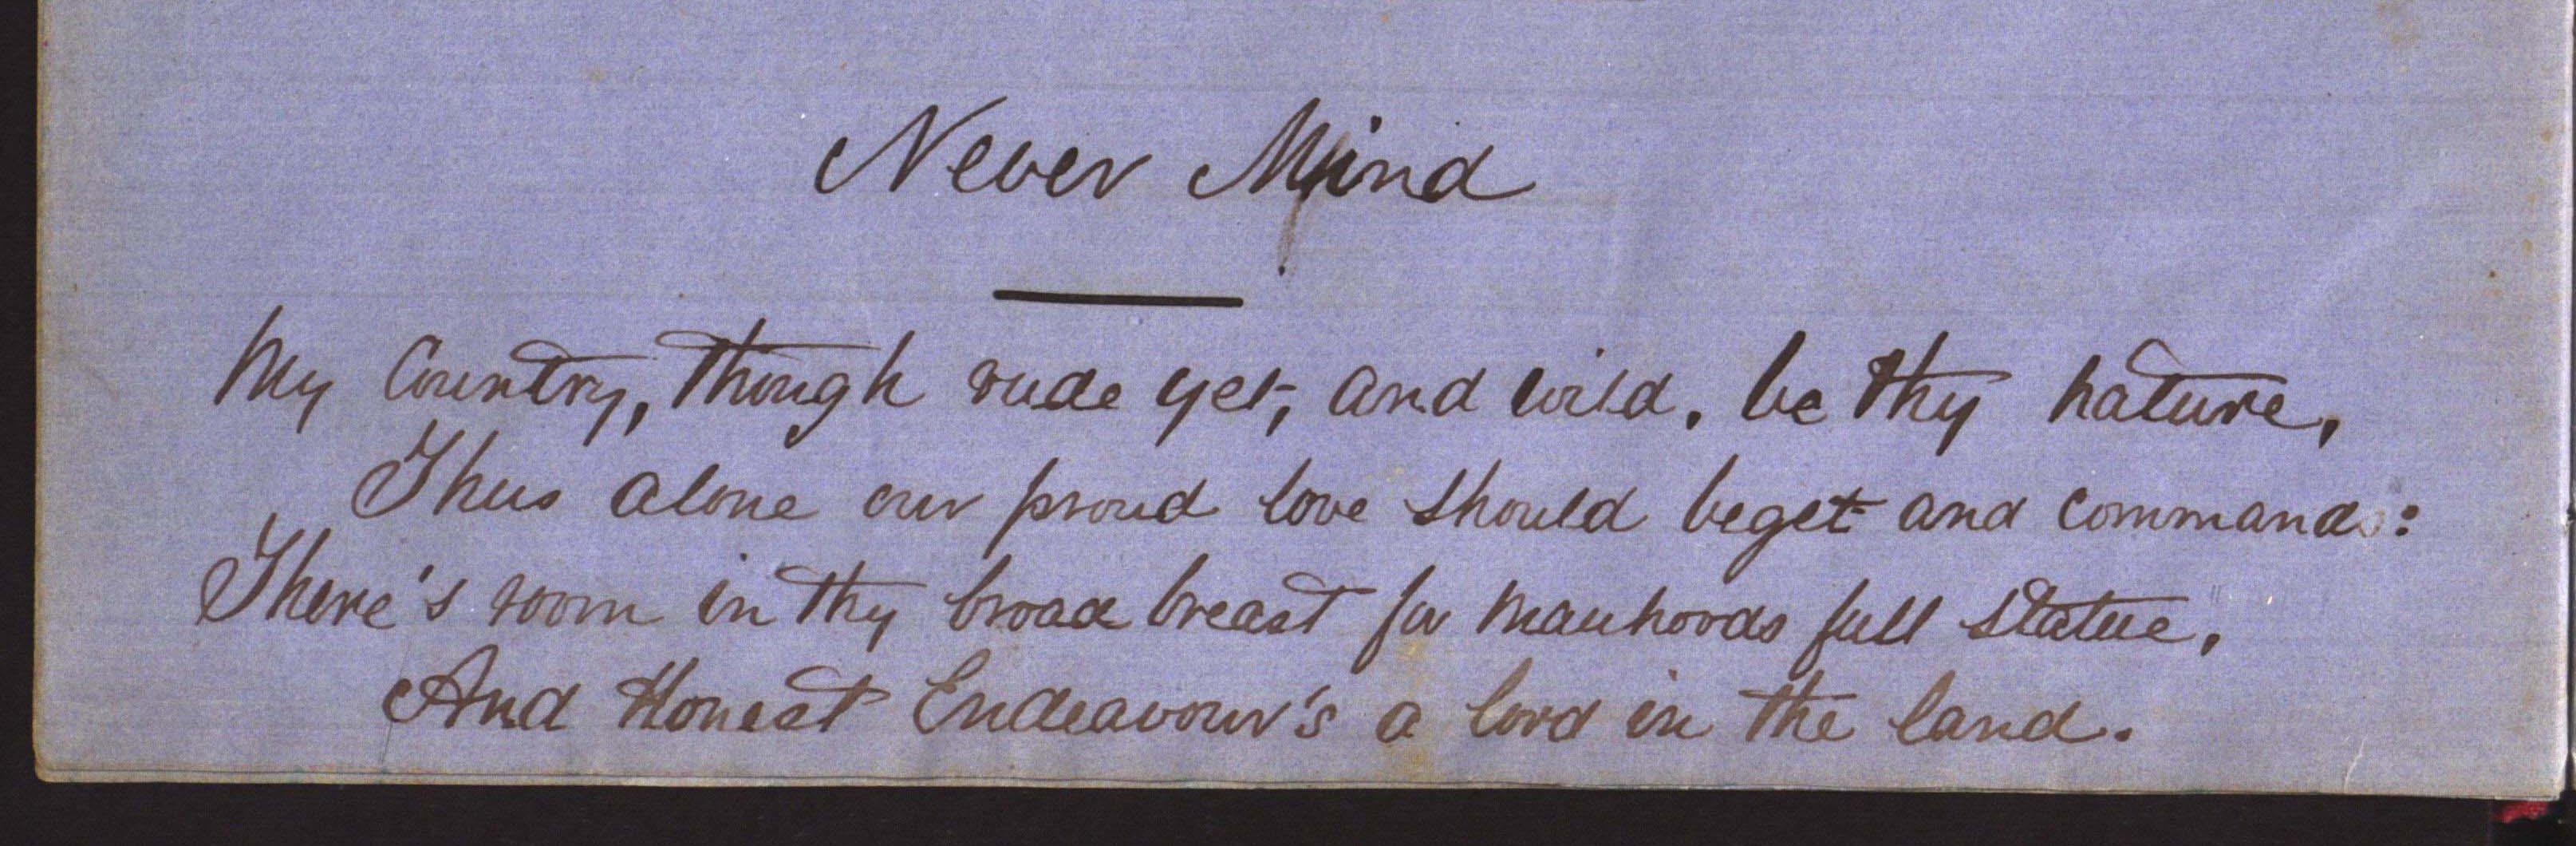 Never Mind
My Country, though rude yet, and wild, be thy nature,
Thus alone our proud love should beget and command:
There's room in thy broad breast for Manhoods full statue,
And Honest Endeavour's a lord in the land.